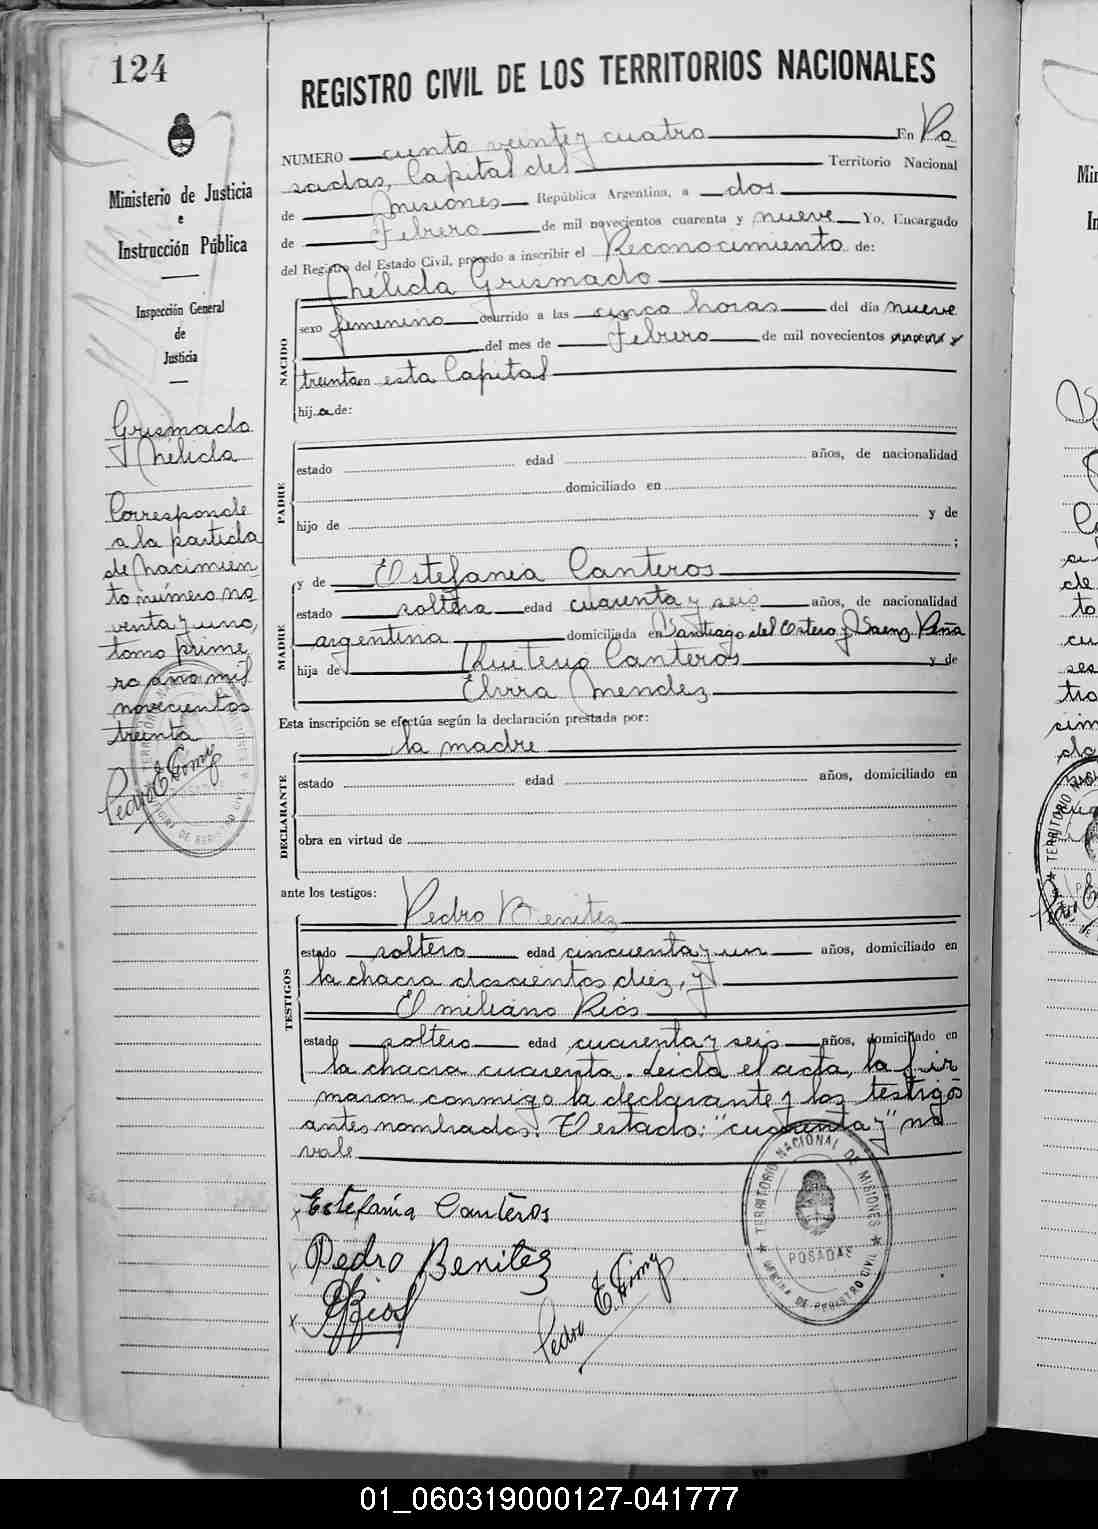 124
Ministerio de Justicia
e
Instrucción Pública
Inspección General
de
Justicia
Grismado
Nélida
Corresponde
a la partida
de nacimien
to número no
venta y uno,
tomo prime
ro año mil
novecientos
treinta
Pedro E. Gomy
REGISTRO CIVIL DE LOS TERRITORIOS NACIONALES
NUMERO ciento veinte y cuatro En Po
sadas, Capital del Territorio Nacional
de Misiones República Argentina, a dos
de Febrero de mil novecientos cuarenta y nueve Yo, Encargado
del Registro del Estado Civil, procedo a inscribir el Reconocimiento de:
Nélida Grismado
NACIDO
sexo femenino ocurrido a las cinco horas del día nueve
del mes de Febrero de mil novecientos cuarenta y
treinta en esta Capital
hija de:
PADRE
estado edad años, de nacionalidad
domiciliado en
hijo de y de
;
MADRE
y de Estefania Canteros
estado soltera edad cuarenta y seis años, de nacionalidad
argentina domiciliada en Santiago del Estero y Saenz Peña
hija de Canteros y de
Elvira Mendez
Esta inscripción se efectúa según la declaración prestada por:
la madre
DECLARANTE
estado edad años, domiciliado en
obra en virtud de
ante los testigos:
Pedro Benitez
TESTIGOS
estado soltero edad cincuenta y un años, domiciliado en
la chacra doscientos diez, y
Emiliano Rios
estado soltero edad cuarenta y seis años, domiciliado en
la chacra cuarenta. Leida el acta, la fir
maron conmigo la declarante y los testigos
antes nombrados. Testado: "cuarenta y" no
vale
Estefanía Canteros
Pedro Benitez
E Rios
Pedro E. Gomy
TERRITORIO NACIONAL DE MISIONES
POSADAS
OFICINA DE REGISTRO CIVIL
01_060319000127-041777